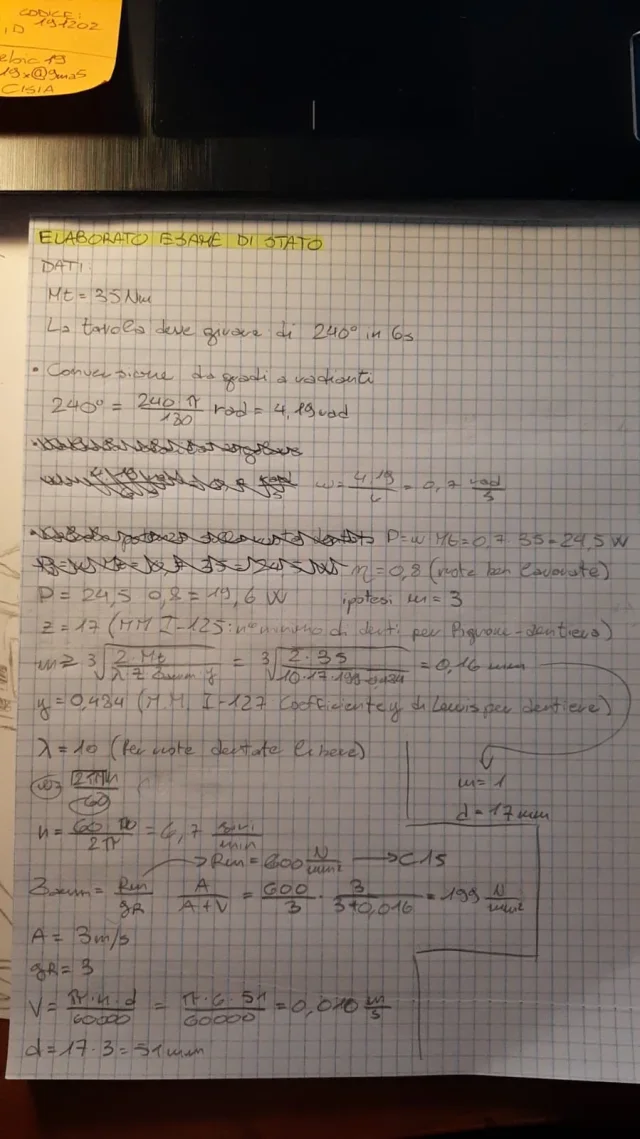 CODICE:
191202
CISIA
ELABORATO ESAME DI STATO
DATI:
Mt = 35 Nm
La tavola deve girare di 240° in 6s
• Conversione da gradi a radianti
240° = 240 π / 180 rad = 4,19 rad
ω = 4,19 / 6 = 0,7 rad/s
P = ω Mt = 0,7 · 35 = 24,5 W
η = 0,8 (ruote ben lavorate)
P = 24,5 · 0,8 = 19,6 W ipotesi m = 3
z = 17 (MM I-125: n° minimo di denti per Pignone-dentiera)
m ≥ 3√ 2 Mt / λ z σamm y = 3√ 2 · 35 / 10 · 17 · 199 · 0,434 = 0,16 mm
y = 0,484 (M.M. I-127 Coefficiente y di Lewis per dentiere)
λ = 10 (Per ruote dentate libere)
m = 1
d = 17 mm
n = 60 / 2π = 6,7 giri/min
Rm = 600 N/mm² → C15
σamm = Rm / gR · A / A+V = 600 / 3 · 3 / 3+0,016 = 199 N/mm²
A = 3 m/s
gR = 3
V = π · n · d / 60000 = π · 6 · 51 / 60000 = m/s
d = 17 · 3 = 51 mm